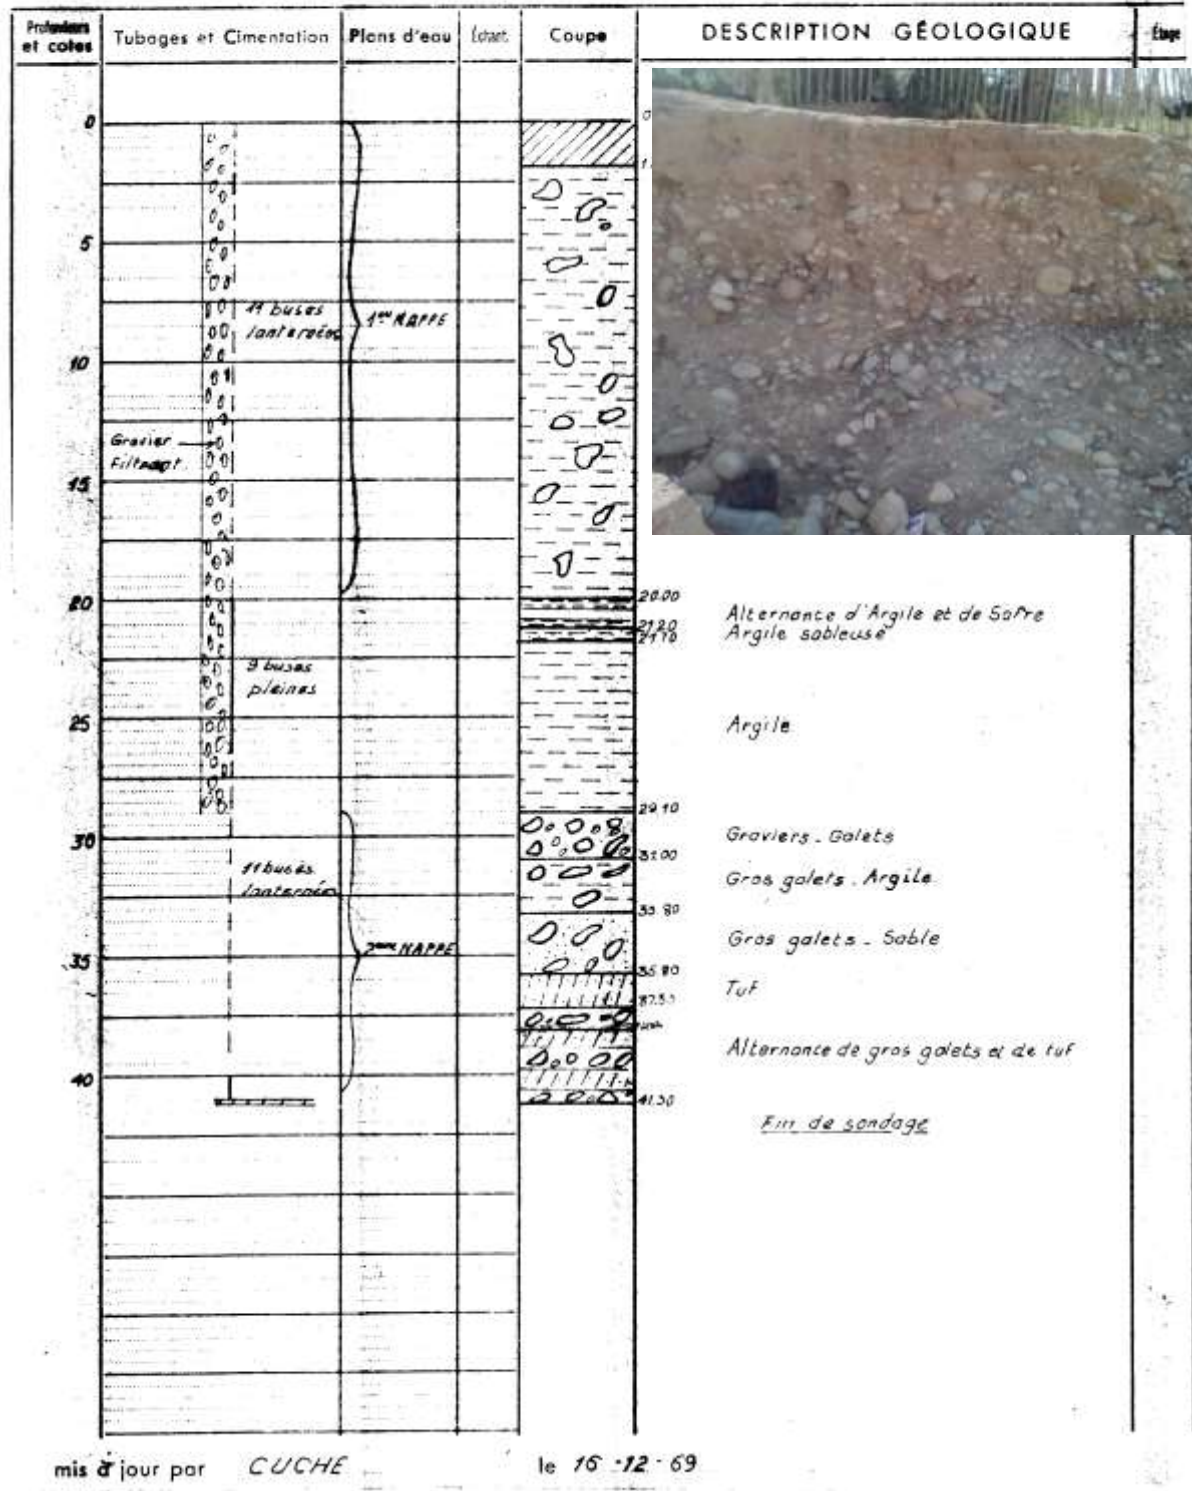 Profondeurs et cotes
Tubages et Cimentation
Plans d'eau
Échant.
Coupe
DESCRIPTION GÉOLOGIQUE
Étage
0
5
10
15
20
25
30
35
40
11 buses
lanternées
Gravier
Filtrant.
9 buses
pleines
11 buses
lanternées
1ère NAPPE
2ème NAPPE
20.00
21.20
21.70
29.10
31.00
37.50
41.30
Alternance d'Argile et de Safre
Argile sableuse
Argile
Graviers - Galets
Gros galets - Argile
Gros galets - Sable
Tuf
Alternance de gros galets et de tuf
Fin de sondage
mis à jour par CUCHE le 16-12-69